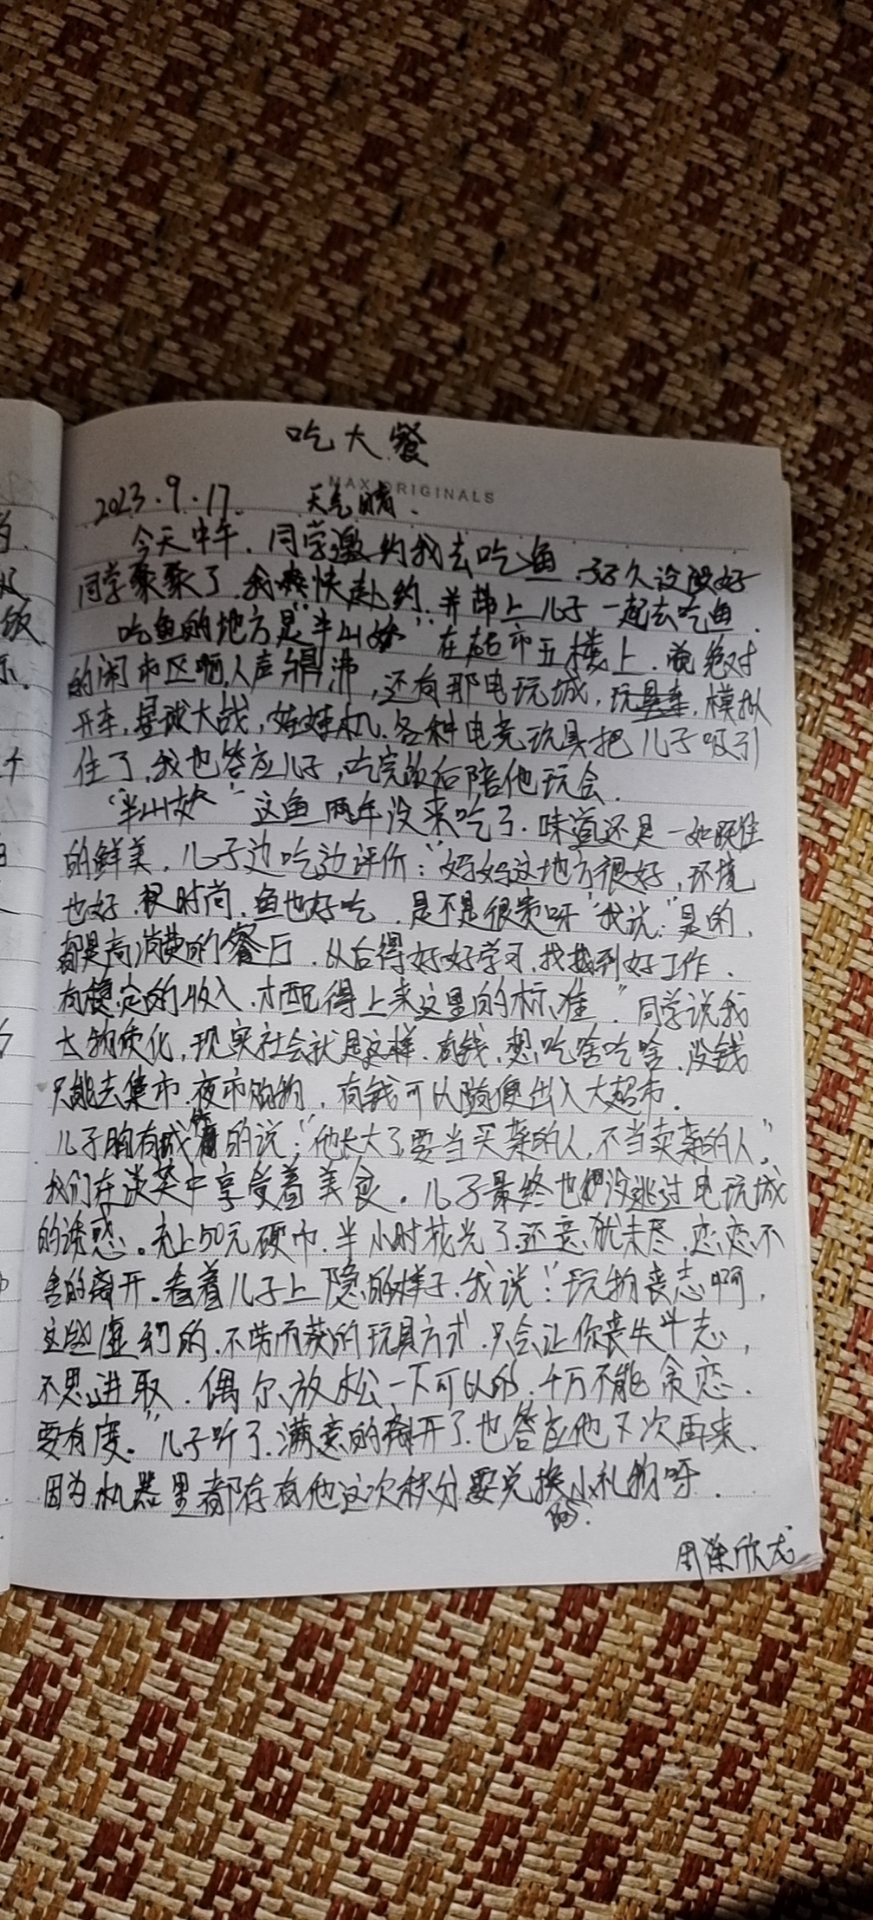 吃大餐
MAX ORIGINALS
2023.9.17. 天气晴.
今天中午.同学邀约我去吃鱼.好久没跟好
同学聚聚了.我爽快赴约.并带上儿子一起去吃鱼.
吃鱼的地方是"半山妖"在超市五楼上.绝对
的闹市区啊,人声鼎沸,还有那电玩城,玩具车,模拟
开车,星球大战,娃娃机.各种电竞玩具把儿子吸引
住了,我也答应儿子,吃完饭后陪他玩会.
"半山妖"这鱼两年没来吃了.味道还是一如既往
的鲜美.儿子边吃边评价:"妈妈这地方很好,环境
也好.很时尚.鱼也好吃.是不是很贵呀"我说:"是的,
都是高消费的餐厅.以后得好好学习,找到好工作.
有稳定的收入.才配得上来这里的标准."同学说我
太物质化,现实社会就是这样.有钱.想吃啥吃啥.没钱
只能去集市.夜市购物.有钱可以随便出入大超市.
儿子胸有成竹的说:"他长大了要当买菜的人,不当卖菜的人"
我们在谈笑中享受着美食.儿子最终也没逃过电玩城
的诱惑。充上50元硬币.半小时花光了.还意犹未尽.恋恋不
舍的离开.看着儿子上隐的样子.我说:"玩物丧志啊,
这些虚幻的.不劳而获的玩具方式.只会让你丧失斗志,
不思进取.偶尔放松一下可以的.千万不能贪恋.
要有度."儿子听了.满意的离开了.也答应他下次再来.
因为机器里都存有他这次积分要兑换小礼物呀.